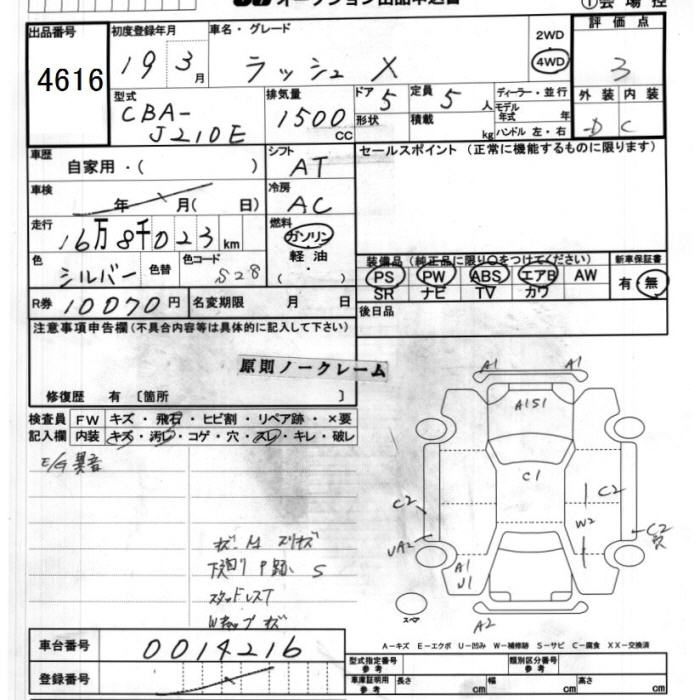 オークション出品申込書
①会場控
出品番号 初度登録年月 車名・グレード 2WD 評価点
4616 19 3月 ラッシュ X 4WD 3
型式 排気量 ドア 定員 ディーラー・並行 外装 内装
CBA- 1500 5 5人 モデル年式 年 D C
J210E CC 形状 積載 kg ハンドル 左・右
車歴 シフト セールスポイント (正常に機能するものに限ります)
自家用・( ) AT
車検 冷房
年 月( 日) AC
走行 燃料
16万8千023km ガソリン
色 色替 色コード 軽油 装備品(純正品に限り○をつけてください) 新車保証書
シルバー S28 ・( ) PS PW ABS エアB AW 有・無
SR ナビ TV カワ
R券 10070円 名変期限 月 日 後日品
注意事項申告欄(不具合内容等は具体的に記入して下さい)
原則ノークレーム
修復歴 有 [箇所 ]
検査員 FW キズ・飛石・ヒビ割・リペア跡・×要
記入欄 内装 キズ・汚レ・コゲ・穴・スレ・キレ・破レ
E/G異音
A1 A1
A1S1
C1
C2 C2
W2
UA2 C2
A1
U1
スペア
A2
下廻り P跡、S
スタッドレスT
A-キズ E-エクボ U-凹み W-補修跡 S-サビ C-腐食 XX-交換済
車台番号 0014216
型式指定番号 参考 類別区分番号 参考
登録番号
車庫証明用 参考 長さ cm 幅 cm 高さ cm